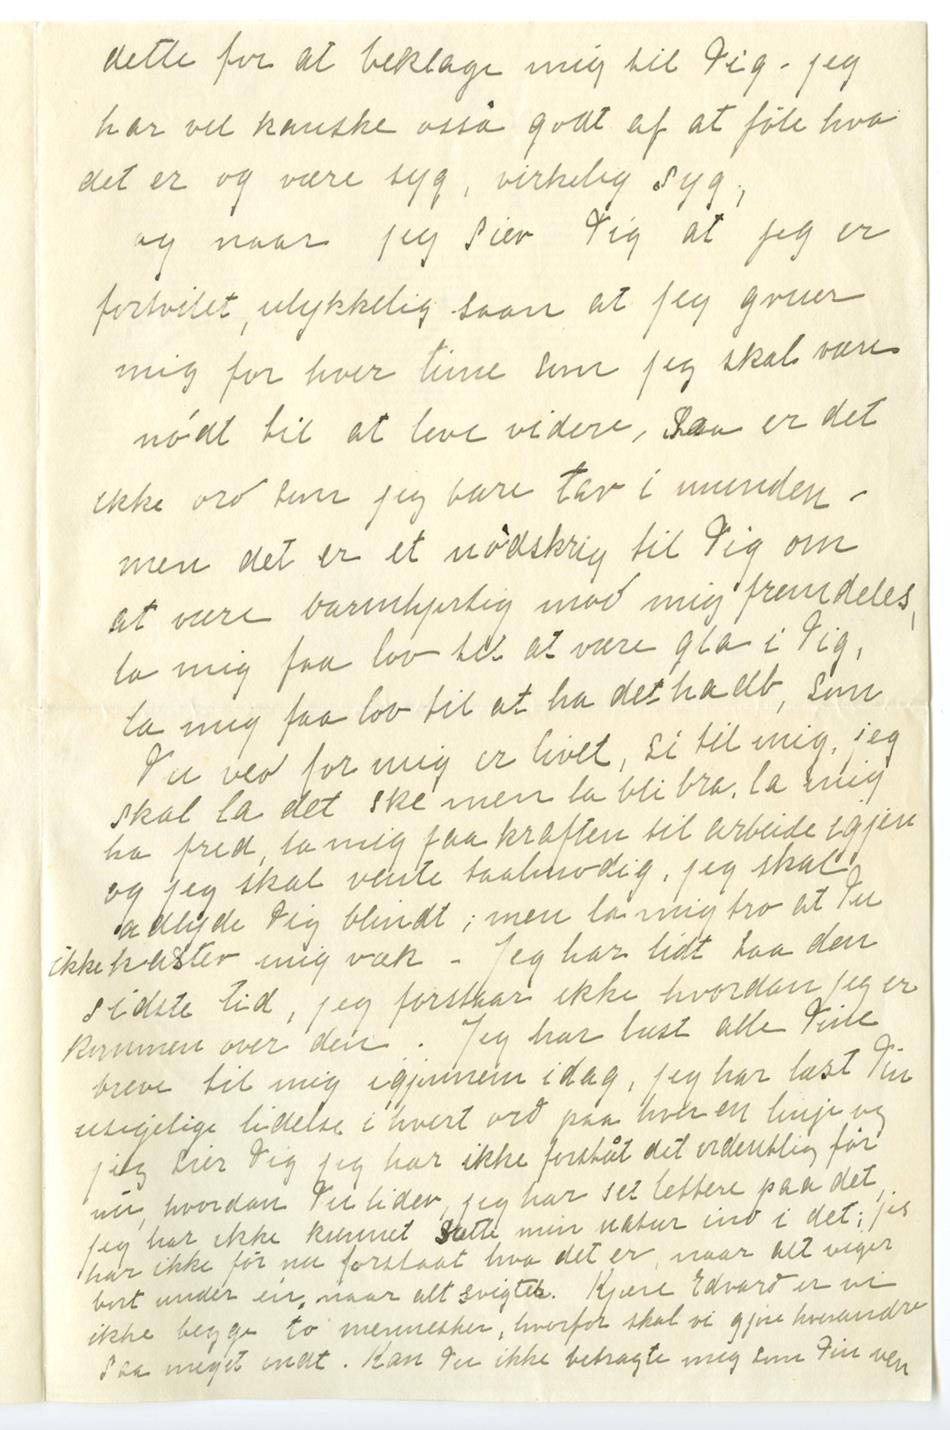 dette for at beklage mig til Dig - jeg
har vel kanske osså godt af at føle hva
det er og være syg, virkelig syg,
og naar jeg sier Dig at jeg er
fortvilet, ulykkelig saan at jeg gruer
mig for hver time som jeg skal være
nødt til at leve videre, saa er det
ikke ord som jeg bare tar i munden -
men det er et nødskrig til Dig om
at være barmhjertig mod mig fremdeles,
la mig faa lov til at være gla i Dig,
la mig faa lov til at ha det haab, som
Du ved for mig er livet, si til mig, jeg
skal la det ske men la bli bra, la mig
ha fred, la mig faa kraften til arbeide igjen
og jeg skal vente taalmodig, jeg skal
adlyde Dig blindt; men la mig tro at Du
ikke kaster mig væk - Jeg har lidt saa den
sidste tid, jeg forstaar ikke hvordan jeg er
kommen over den. Jeg har læst alle Dine
breve til mig igjennem idag, jeg har læst Din
usigelige lidelse i hvert ord paa hver en linje og
jeg sier Dig jeg har ikke forståt det ordentlig før
nu, hvordan Du lider, jeg har set lettere paa det,
jeg har ikke kunnet sætte min natur ind i det; jeg
har ikke før nu forstaat hva det er, naar alt viger
bort under én, naar alt svigter. Kjære Edvard er vi
ikke begge to mennesker, hvorfor skal vi gjøre hverandre
saa meget ondt. Kan Du ikke betragte mig som Din ven